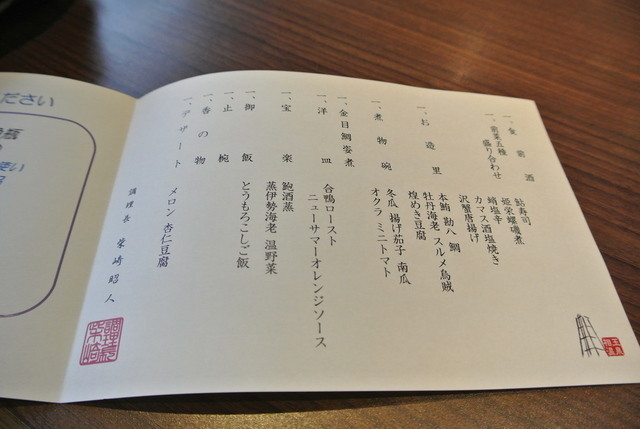 一、食前酒
一、前菜五種
盛り合わせ
鮎寿司
姫栄螺磯煮
蛸塩辛
カマス酒塩焼き
沢蟹唐揚げ
一、お造里
本鮪 勘八 鯛
牡丹海老 スルメ烏賊
煌めき豆腐
一、煮物碗
冬瓜 揚げ茄子 南瓜
オクラ ミニトマト
一、金目鯛姿煮
一、洋皿
合鴨ロースト
ニューサマーオレンジソース
一、宝楽
鮑酒蒸
蒸伊勢海老 温野菜
一、御飯
とうもろこしご飯
一、止椀
一、香の物
一、デザート
メロン 杏仁豆腐
調理長 柴崎昭人
ださい